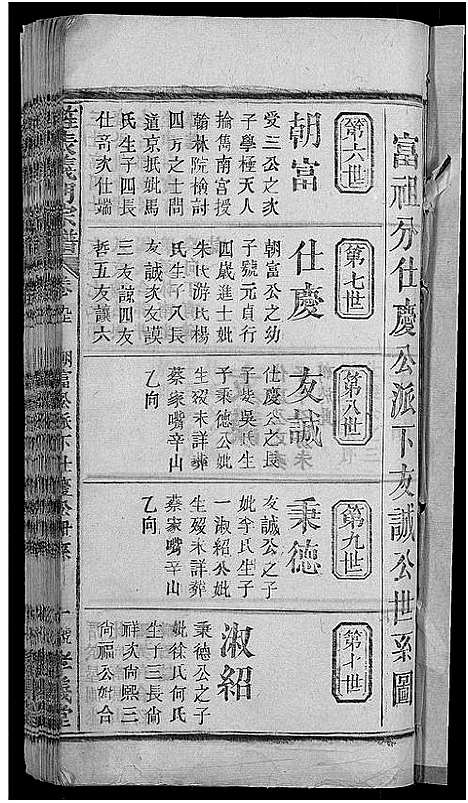 富祖分仕慶公派下友誠公世系圖
第六世
朝富
愛三公之次
子學極天人
掄儁南宮授
翰林院檢討
四方之士問
道京抵妣馬
氏生子四長
仕奇次仕端
第七世
仕慶
朝富公之幼
子號元貞行
四歲進士妣
朱氏游氏楊
氏生子八長
友誠次友謨
三友諒四友
哲五友讓六
第八世
友誠
仕慶公之長
子娶吳氏生
子秉德公妣
生歿未詳葬
蔡家嘴辛山
乙向
第九世
秉德
友誠公之子
妣李氏生子
一淑紹公妣
生歿未詳葬
蔡家嘴辛山
乙向
第十世
淑紹
秉德公之子
妣徐氏何氏
生子三長尙
祥次尙熙三
尙福公妣合
宗譜
朝富公派下仕慶公世系
孝義堂